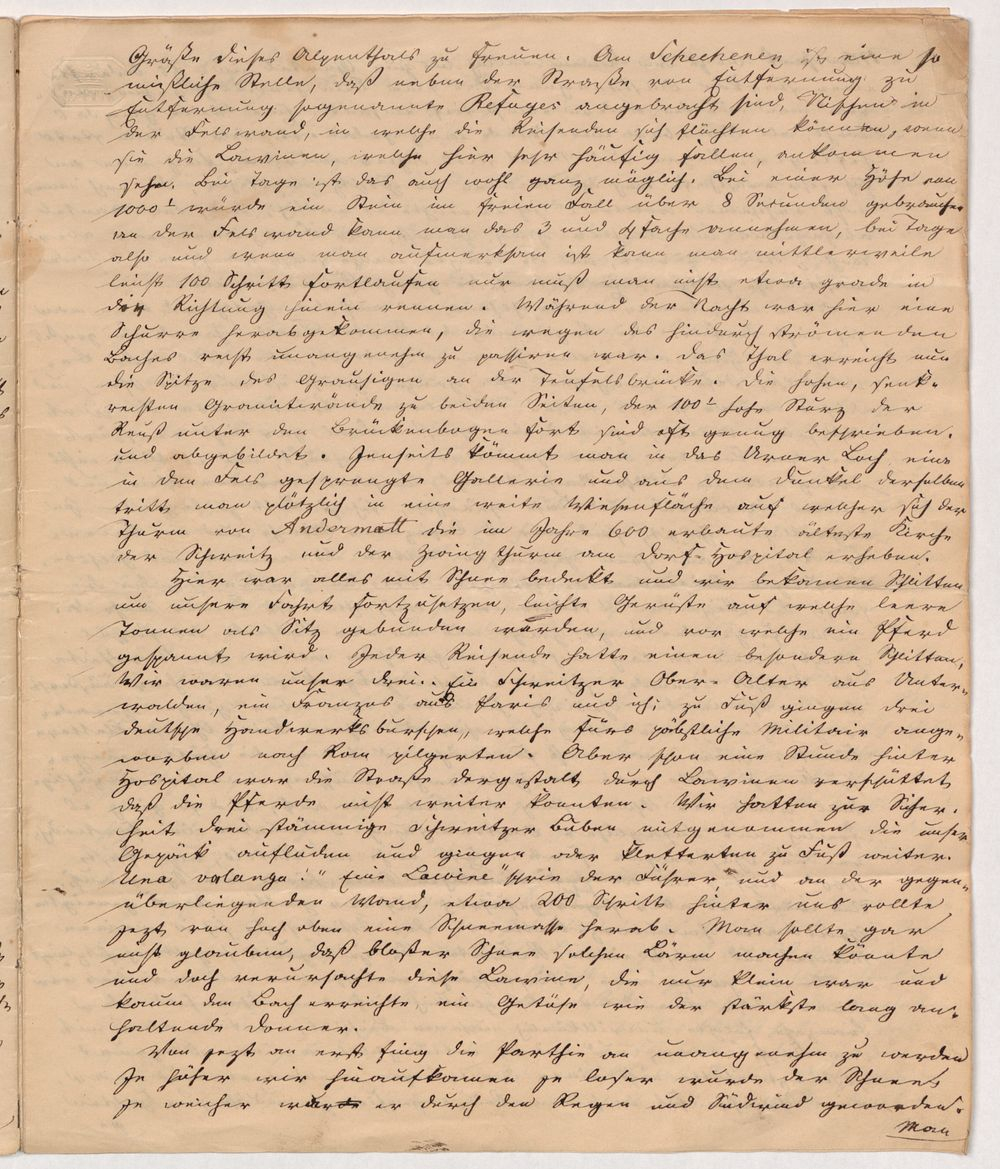 Größe dieses Alpenthals zu freuen. Am Schechenen ist eine so
mißliche Stelle, daß neben der Straße von Entfernung zu
Entfernung sogenannte Refuges angebracht sind, Nischen in
der Felswand, in welche die Reisenden sich flüchten können, wenn
sie die Lawinen, welche hier sehr häufig fallen, ankommen
sehn. Bei Tage ist das auch wohl ganz möglich. Bei einer Höhe von
1000' würde ein Stein im freien Fall über 8 Secunden gebrauchen
an der Felswand kann man das 3 und 4fache annehmen, bei Tage
also und wenn man aufmerksam ist kann man mittlerweile
leicht 100 Schritt fortlaufen nur muß man nicht etwa grade in
die Richtung hinein rennen. Während der Nacht war hier eine
Schurre herabgekommen, die wegen des hindurch strömenden
Baches recht unangenehm zu passiren war. Das Thal erreicht nun
die Spitze des Grausigen an der Teufelsbrücke. Die hohen, senk-
rechten Granitwände zu beiden Seiten, der 100' hohe Sturz der
Reuß unter den Brückenbogen fort sind oft genug beschrieben.
und abgebildet. Jenseits kömmt man in das Urner Loch eine
in den Fels gesprengte Gallerie und aus dem Dunkel derselben
tritt man plötzlich in eine weite Wiesenfläche auf welcher sich der
Thurm von Andermatt die im Jahre 600 erbaute älteste Kirche
der Schweitz und der Zwingthurm am Dorf-Hospital erheben.
Hier war alles mit Schnee bedeckt und wir bekamen Schlitten
um unsere Fahrt fortzusetzen, leichte Gerüste auf welche leere
Tonnen als Sitz gebunden wurden, und vor welche ein Pferd
gespannt wird. Jeder Reisende hatte einen besondern Schlitten,
Wir waren unser drei. Ein Schweitzer Ober-Alter aus Unter-
walden, ein Franzos aus Paris und ich; zu Fuß gingen drei
deutsche Handwerksburschen, welche fürs päbstliche Militair ange-
worben nach Rom pilgerten. Aber schon eine Stunde hinter
Hospital war die Straße dergestalt durch Lawinen verschüttet
daß die Pferde nicht weiter konnten. Wir hatten zur Sicher-
heit drei stämmige Schweitzer Buben mitgenommen die unser
Gepäck aufluden und gingen oder kletterten zu Fuß weiter.
Una valanga!" Eine Lawine" schrie der Führer und an der gegen-
überliegenden Wand, etwa 200 Schritt hinter uns rollte
jezt von hoch oben eine Schneemasse herab. Man sollte gar
nicht glauben, daß bloßer Schnee solchen Lärm machen könnte
und doch verursachte diese Lawine, die nur klein war und
kaum den Bach erreichte, ein Getöse wie der stärkste lang an-
haltende Donner.
Von jezt an erst fing die Parthie an unangenehm zu werden
Je höher wir hinaufkamen je loser wurde der Schnee,
je weicher war er durch den Regen und Südwind geworden.
Man